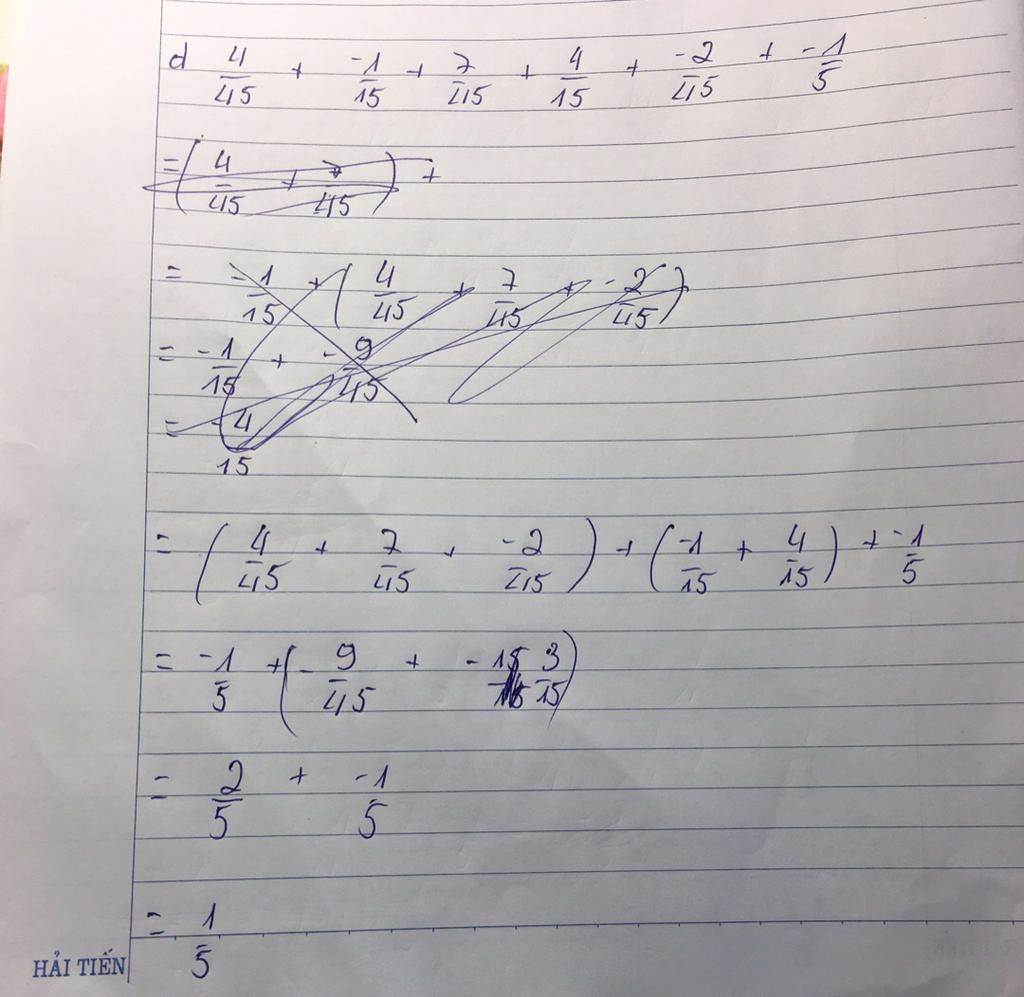 d 4/45 + -1/15 + 7/45 + 4/15 + -2/45 + -1/5
= (4/45 + 7/45) +
= -1/15 + (4/45 + 7/45 + -2/45)
= -1/15 + -9/45
= -4/15
= (4/45 + 7/45 + -2/45) + (-1/15 + 4/15) + -1/5
= -1/5 + (-9/45 + - 3/15)
= 2/5 + -1/5
= 1/5
HẢI TIẾN